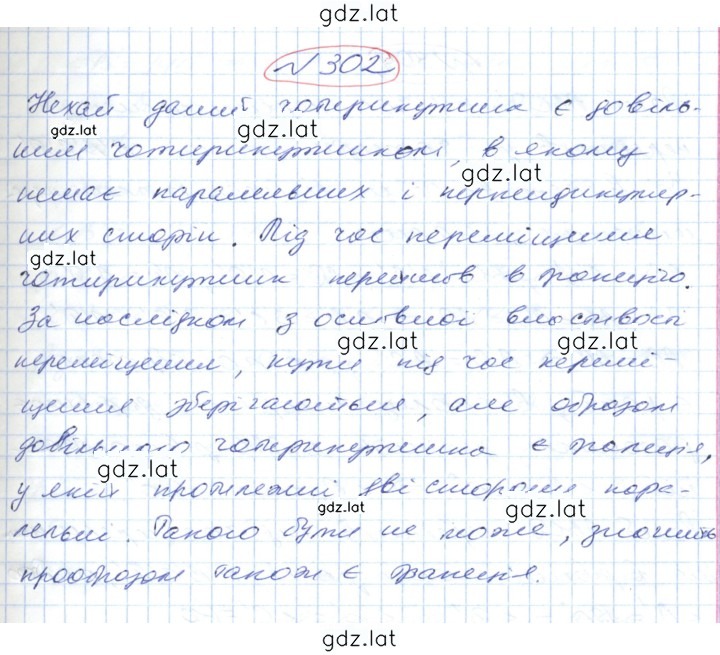 gdz.lat
№ 302
Нехай даний чотирикутник є довіль-
gdz.lat gdz.lat
ним чотирикутником, в якому
немає паралельних і перпендикуляр-
gdz.lat
них сторін. Під час переміщення
gdz.lat
чотирикутник перейшов в трапецію.
За наслідком з основної властивості
gdz.lat gdz.lat
переміщення, кути під час перемі-
щення зберігаються, але образом
довільного чотирикутника є трапеція,
gdz.lat gdz.lat
у якій протилежні дві сторони пара-
gdz.lat gdz.lat
лельні. Такого бути не може, значить
прообразом також є трапеція.
gdz.lat